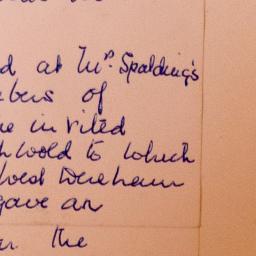 d at Mrs. Spalding's
bers of
e invited
hwold to which
West Dereham
gave an
the